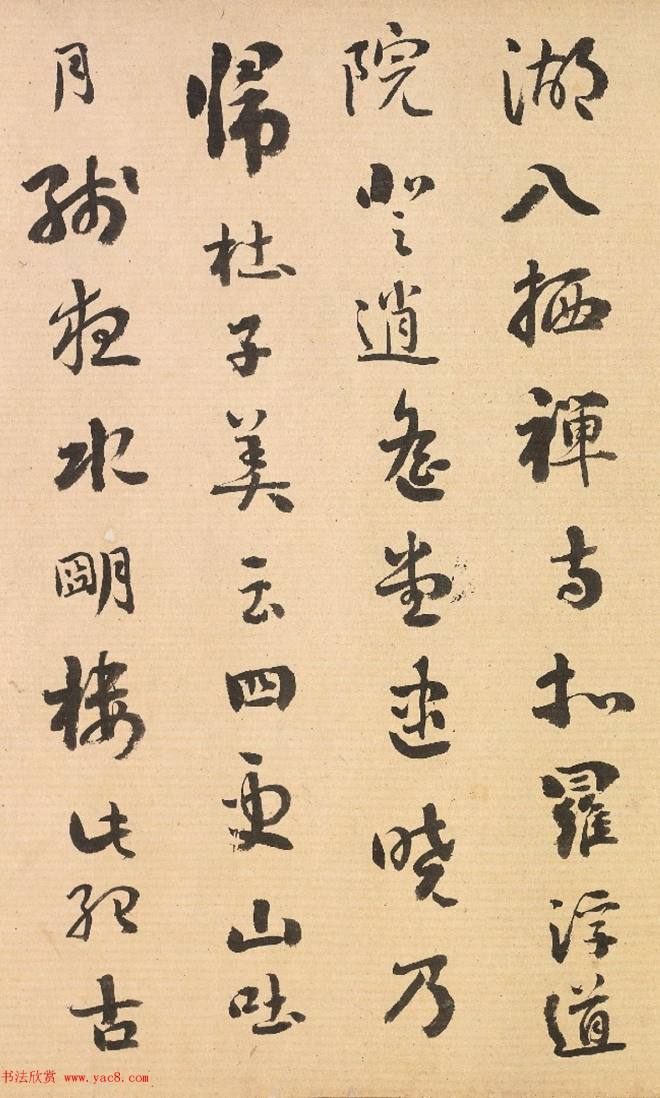 湖入栖禪寺扣羅浮道
院登逍遙堂逮曉乃
歸杜子美云四更山吐
月殘夜水明樓此殆古
书法欣赏 www.yac8.com